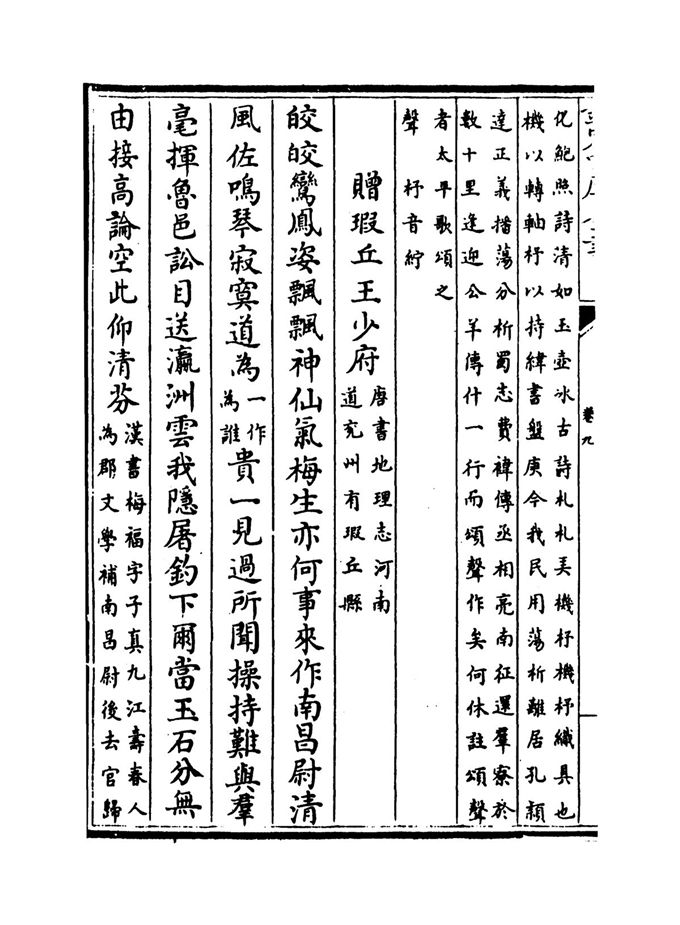 化鮑照詩清如玉壺冰古詩札札弄機杼機杼織具也
機以轉軸杼以持緯書盤庚今我民用蕩析離居孔穎
達正義揩蕩分析蜀志費褘傳丞相亮南征還羣寮於
數十里逢迎公羊傳什一行而頌聲作矣何休註頌聲
者太平歌頌之
聲 杼音紵
贈瑕丘王少府
唐書地理志河南
道兖州有瑕丘縣
皎皎鸞鳳姿飄飄神仙氣梅生亦何事來作南昌尉清
風佐鳴琴寂寞道為
一作
為誰
貴一見過所聞操持難與羣
毫揮魯邑訟目送瀛洲雲我隱屠釣下爾當玉石分無
由接高論空此仰清芬
漢書梅福字子真九江壽春人
為郡文學補南昌尉後去官歸
卷九